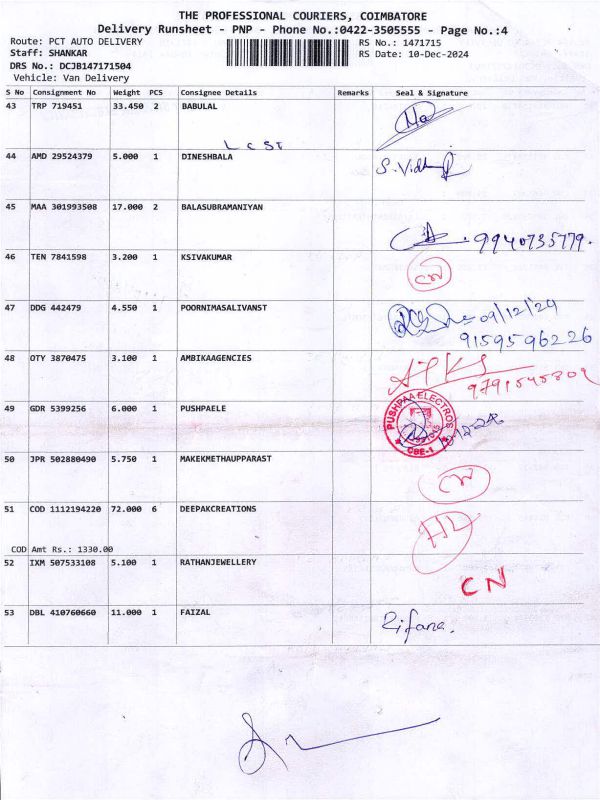 THE PROFESSIONAL COURIERS, COIMBATORE
Delivery Runsheet - PNP - Phone No.:0422-3505555 - Page No.:4
Route: PCT AUTO DELIVERY RS No.: 1471715
Staff: SHANKAR RS Date: 10-Dec-2024
DRS No.: DCJB147171504
Vehicle: Van Delivery
S No Consignment No Weight PCS Consignee Details Remarks Seal & Signature
43 TRP 719451 33.450 2 BABULAL
L C ST
44 AMD 29524379 5.000 1 DINESHBALA S. Vidh
45 MAA 301993508 17.000 2 BALASUBRAMANIYAN
9940735779.
46 TEN 7841598 3.200 1 KSIVAKUMAR
CN
47 DDG 442479 4.550 1 POORNIMASALIVANST 09/12/24
9159596226
48 OTY 3870475 3.100 1 AMBIKAAGENCIES
49 GDR 5399256 6.000 1 PUSHPAELE PUSHPAA ELECTRO
CBE-1
50 JPR 502880490 5.750 1 MAKEKMETHAUPPARAST
CN
51 COD 1112194220 72.000 6 DEEPAKCREATIONS
COD Amt Rs.: 1330.00
52 IXM 507533108 5.100 1 RATHANJEWELLERY
CN
53 DBL 410760660 11.000 1 FAIZAL
Rifana.